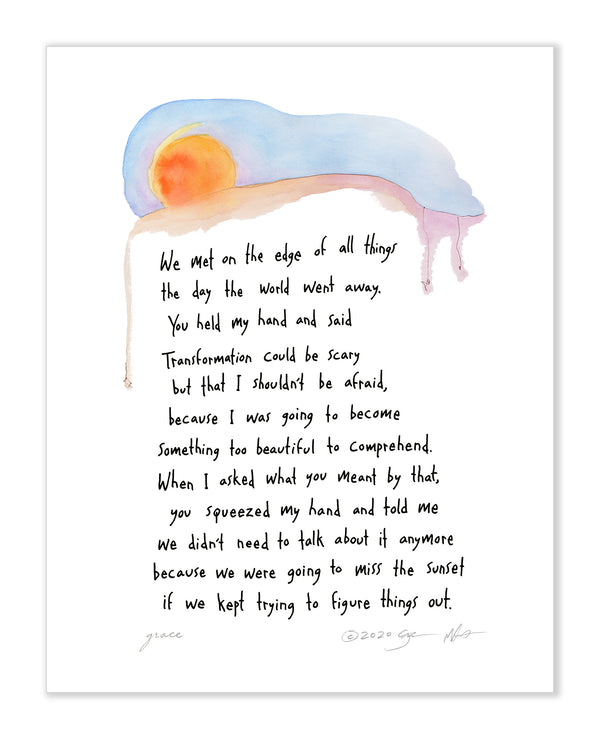 We met on the edge of all things
the day the world went away.
You held my hand and said
Transformation could be scary
but that I shouldn't be afraid,
because I was going to become
something too beautiful to comprehend.
When I asked what you meant by that,
you squeezed my hand and told me
we didn't need to talk about it anymore
because we were going to miss the sunset
if we kept trying to figure things out.
grace ©2020